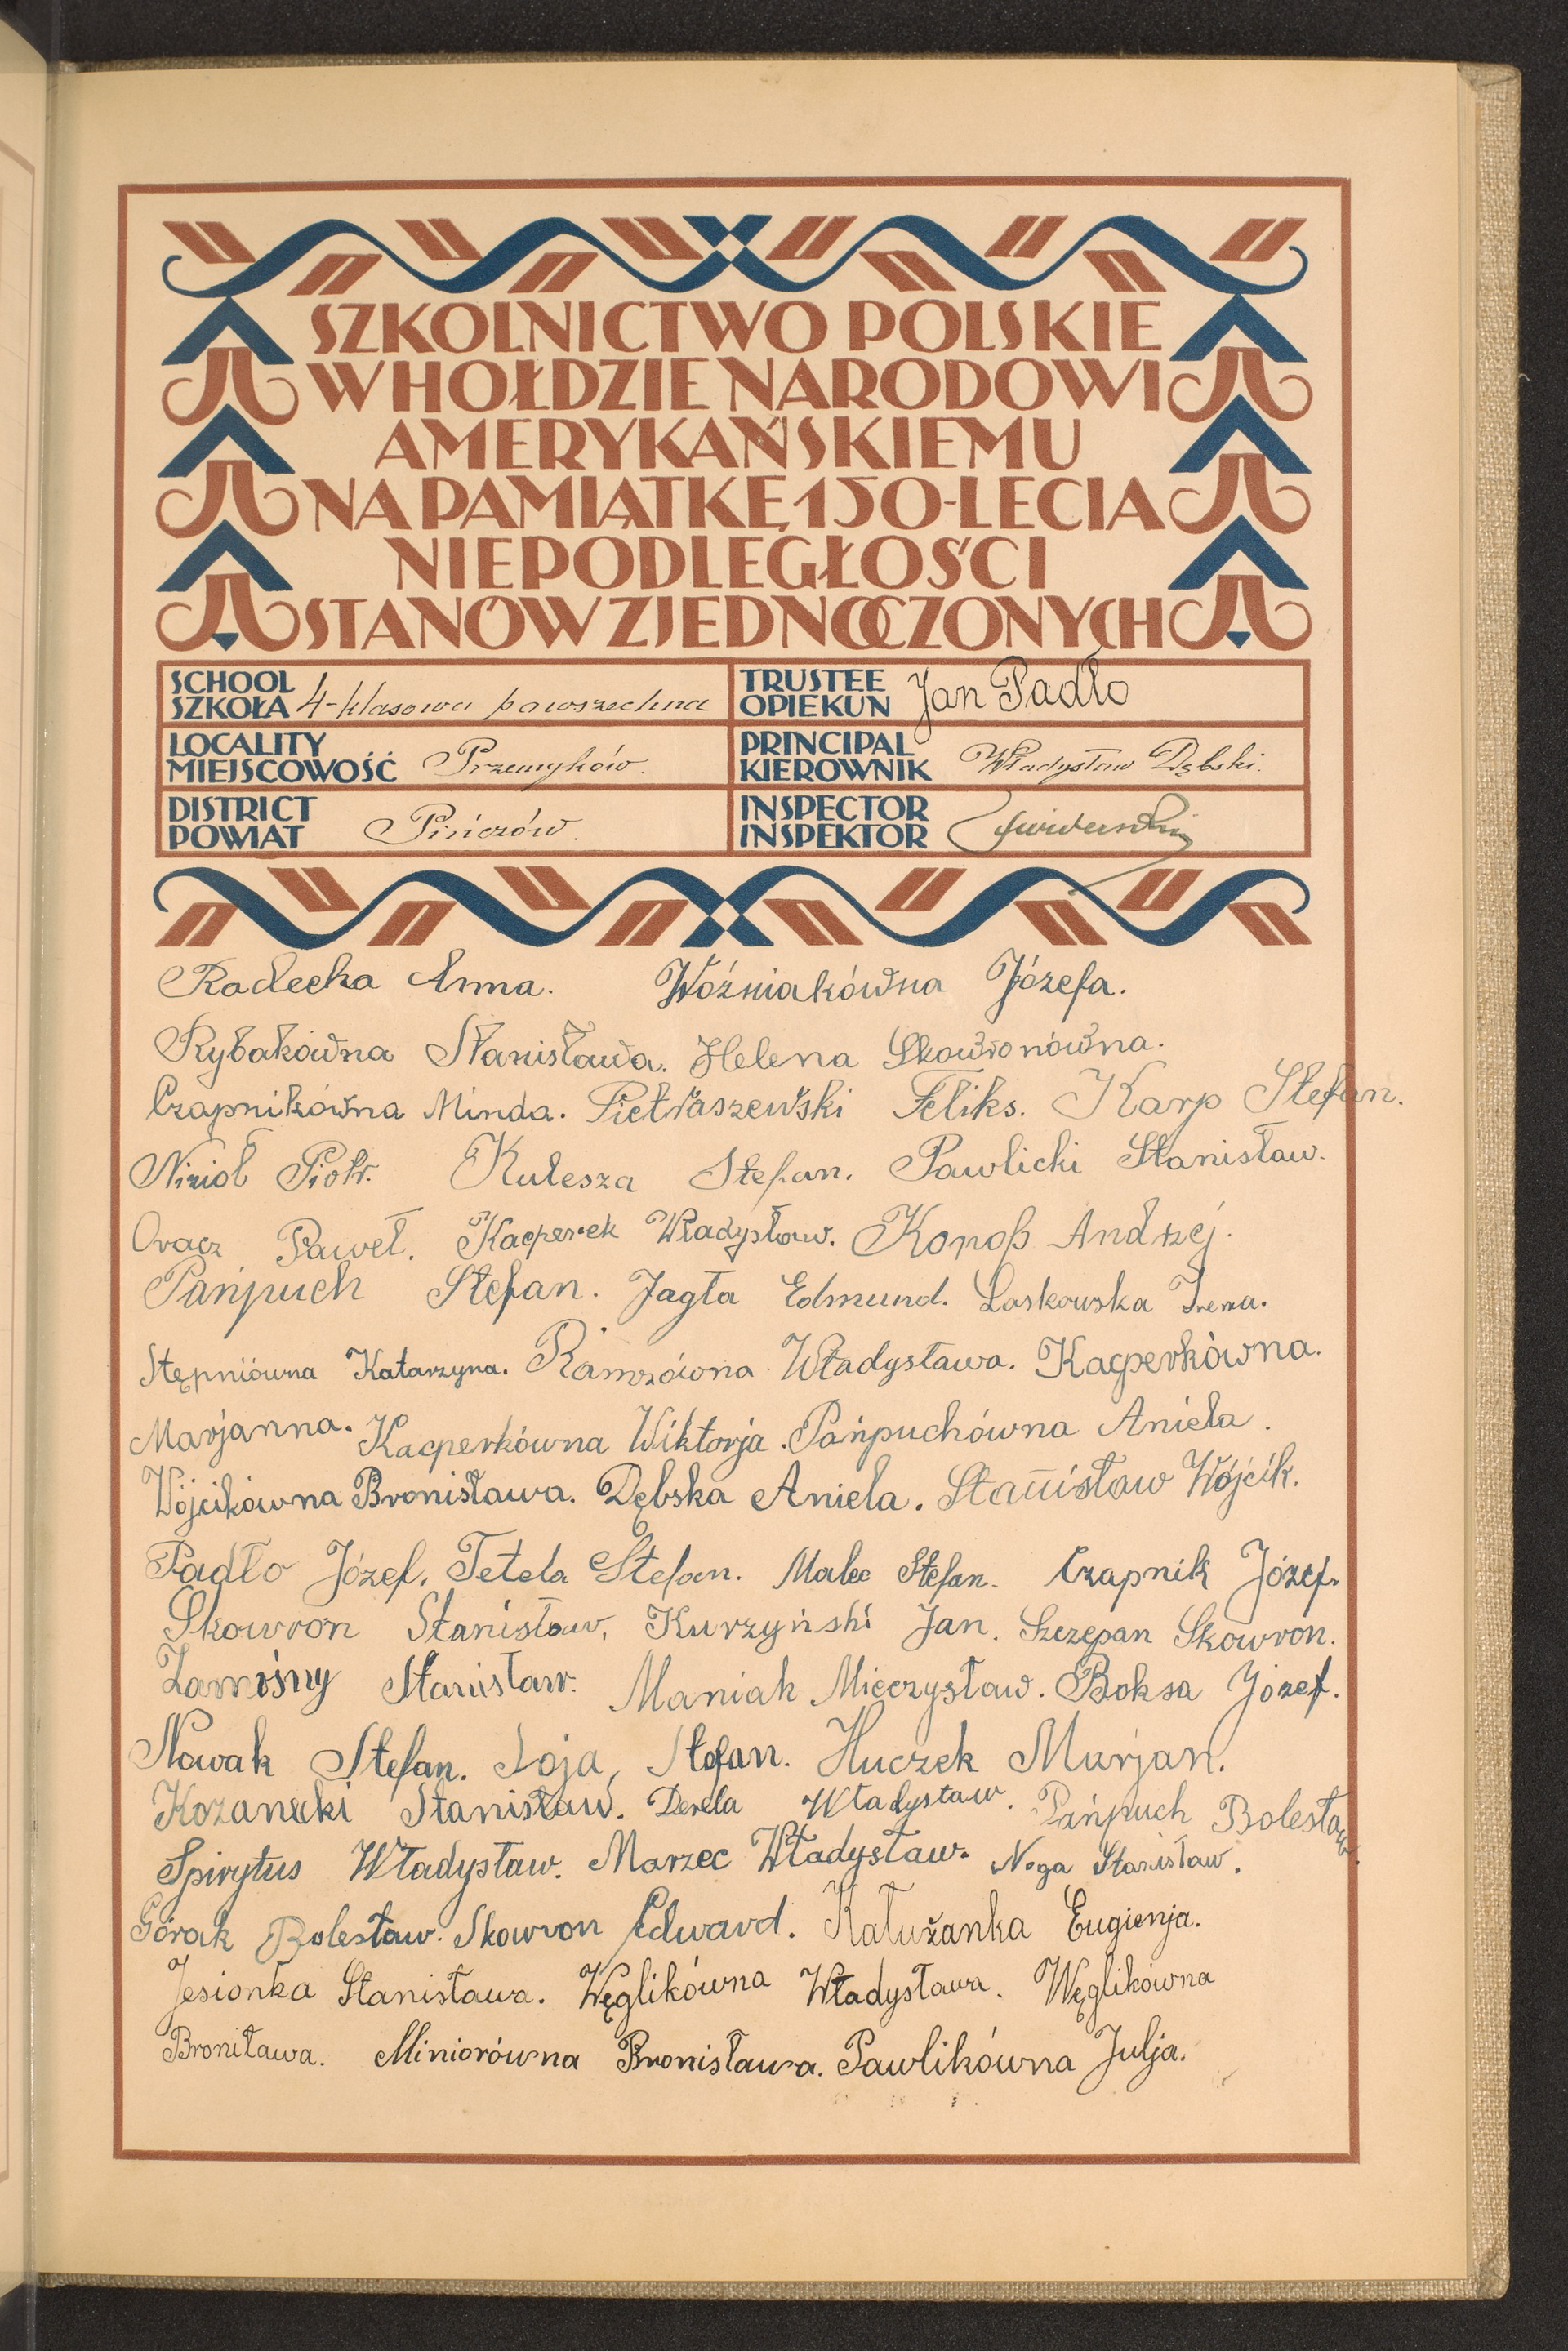 SZKOLNICTWO POLSKIE
W HOŁDZIE NARODOWI
AMERYKAŃSKIEMU
NA PAMIĄTKĘ 150-LECIA
NIEPODLEGŁOŚCI
STANÓW ZJEDNOCZONYCH
SCHOOL
SZKOŁA 4-klasowa powszechna
TRUSTEE
OPIEKUN Jan Padło
LOCALITY
MIEJSCOWOŚĆ Przemyków.
PRINCIPAL
KIEROWNIK Władysław Dębski.
DISTRICT
POWIAT Pińczów.
INSPECTOR
INSPEKTOR
Radecka Anna. Woźniakówna Józefa.
Rybakówna Stanisława. Helena Skowronówna.
Czapnikówna Minda. Pietraszewski Feliks. Karp Stefan.
Nizioł Piotr. Kulesza Stefan. Pawlicki Stanisław.
Oracz Paweł. Kacperek Władysław. Andrzej.
Pańpuch Stefan. Jagła Edmund. Laskowska Irena.
Stępniówna Katarzyna. Ramzówna Władysława. Kacperkówna.
Marjanna. Kacperkówna Wiktorja. Pańpuchówna Aniela.
Wójcikówna Bronisława. Dębska Aniela. Stanisław Wójcik.
Padło Józef. Tetela Stefan. Malec Stefan. Czapnik Józef.
Skowron Stanisław. Kurzyński Jan. Szczepan Skowron.
Stanisław. Maniak Mieczysław. Boksa Józef.
Nowak Stefan. Soja, Stefan. Huczek Marjan.
Kozanecki Stanisław. Derela Władysław. Pańpuch Bolesław.
Spirytus Władysław. Marzec Władysław. Noga Stanisław.
Górak Bolesław. Skowron Edward. Kałużanka Eugienja.
Jesionka Stanisława. Węglikówna Władysława. Węglikówna
Broniława. Miniorówna Bronisława. Pawlikówna Julja.